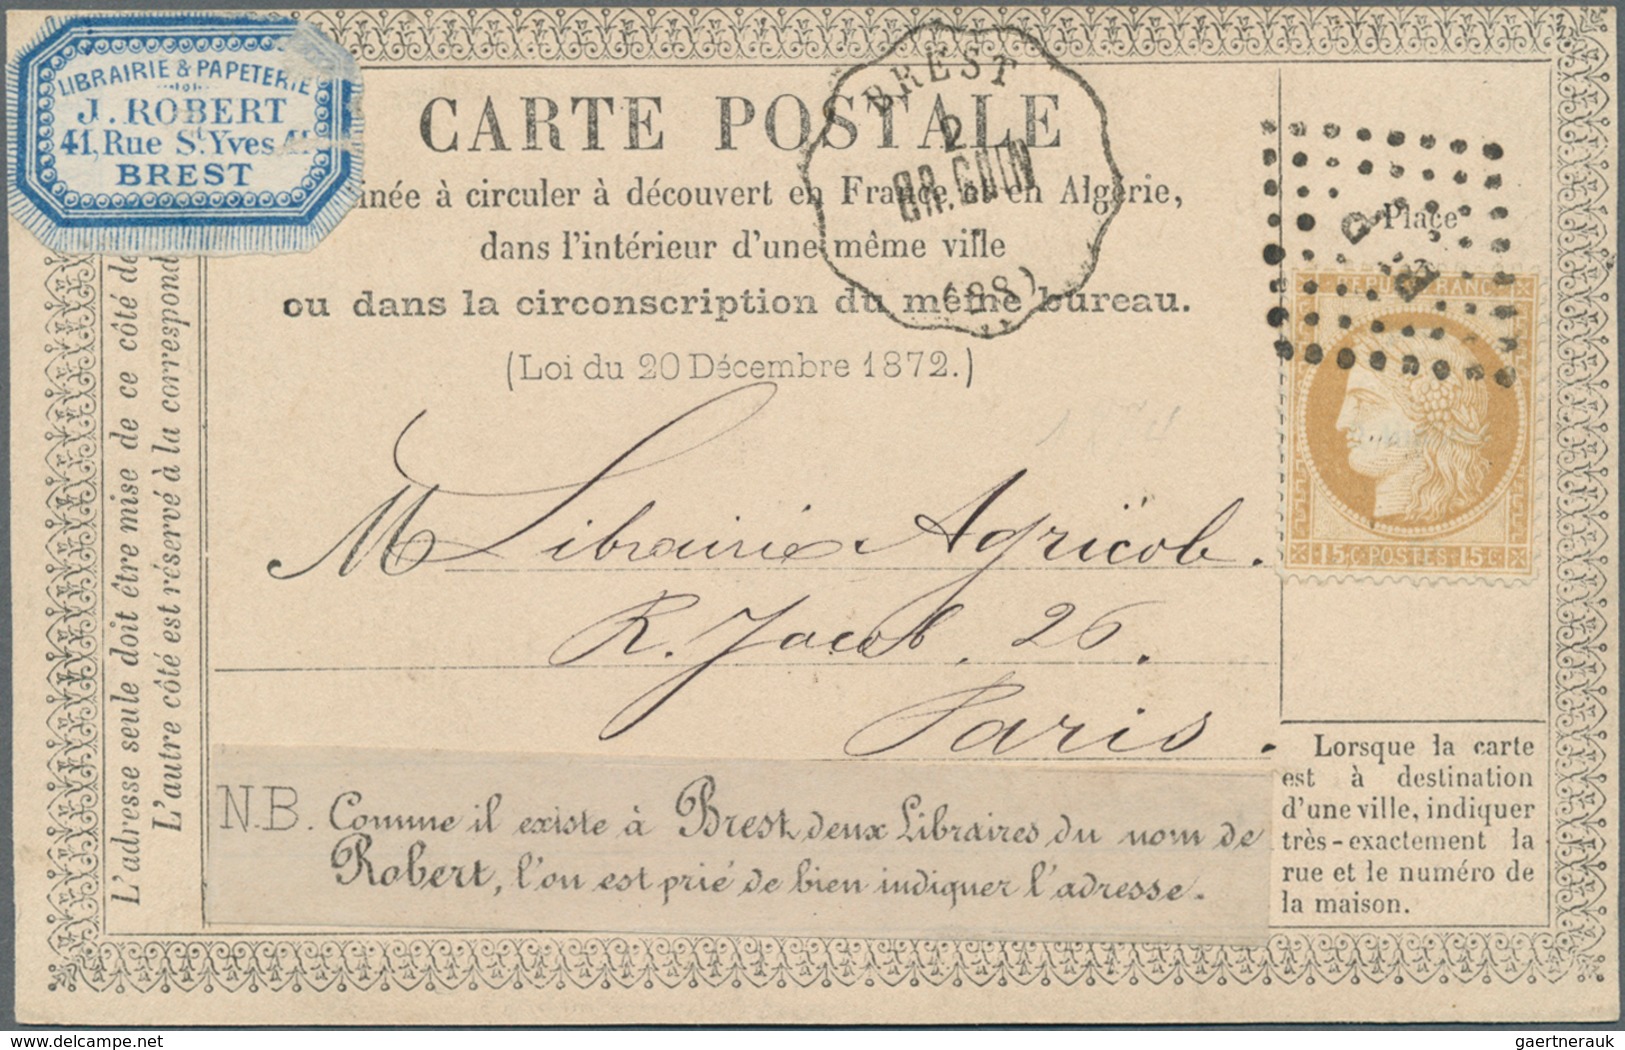 LIBRAIRIE & PAPETERIE
J. ROBERT
41, Rue St. Yves 41
BREST
CARTE POSTALE
inée à circuler à découvert en France et en Algérie,
dans l'intérieur d'une même ville
ou dans la circonscription du même bureau.
(Loi du 20 Décembre 1872.)
BREST
2
(28)
Place
REPUB FRANC
15 C POSTES 15 C
L'adresse seule doit être mise de ce côté de
L'autre côté est réservé à la correspond
M Librairie Agricole.
R. Jacob. 26.
Paris.
N.B. Comme il existe à Brest, deux Libraires du nom de
Robert, l'on est prié de bien indiquer l'adresse.
Lorsque la carte
est à destination
d'une ville, indiquer
très-exactement la
rue et le numéro de
la maison.
delcampe.net
gaertnerauk